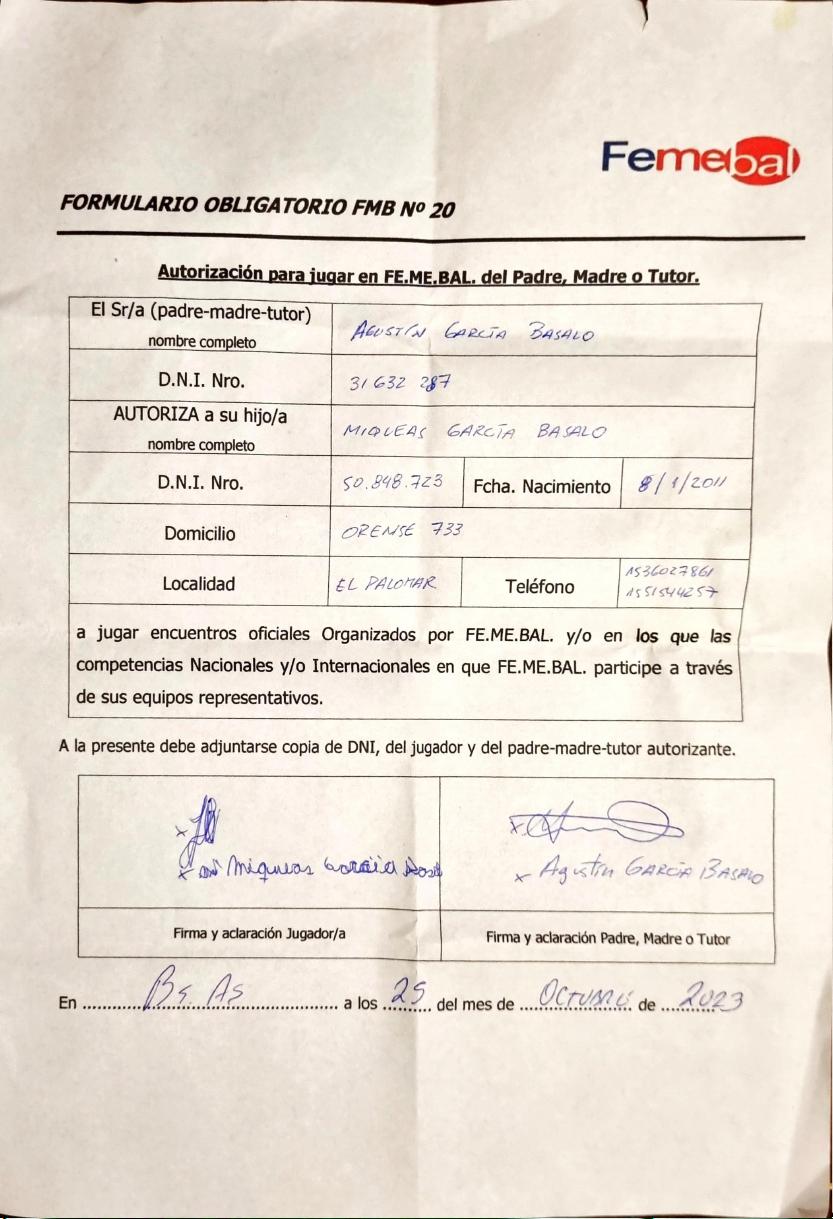 Femebal
FORMULARIO OBLIGATORIO FMB Nº 20
Autorización para jugar en FE.ME.BAL. del Padre, Madre o Tutor.
El Sr/a (padre-madre-tutor) AGUSTÍN GARCÍA BASALO
nombre completo
D.N.I. Nro. 31632 287
AUTORIZA a su hijo/a MIQUEAS GARCÍA BASALO
nombre completo
D.N.I. Nro. 50.848.723 Fcha. Nacimiento 8/1/2011
Domicilio ORENSE 733
Localidad EL PALOMAR Teléfono 1536027861
1551544257
a jugar encuentros oficiales Organizados por FE.ME.BAL. y/o en los que las
competencias Nacionales y/o Internacionales en que FE.ME.BAL. participe a través
de sus equipos representativos.
A la presente debe adjuntarse copia de DNI, del jugador y del padre-madre-tutor autorizante.
Miqueas García
Agustín GARCÍA BASALO
Firma y aclaración Jugador/a Firma y aclaración Padre, Madre o Tutor
En Bs. As a los 25 del mes de OCTUBRE de 2023